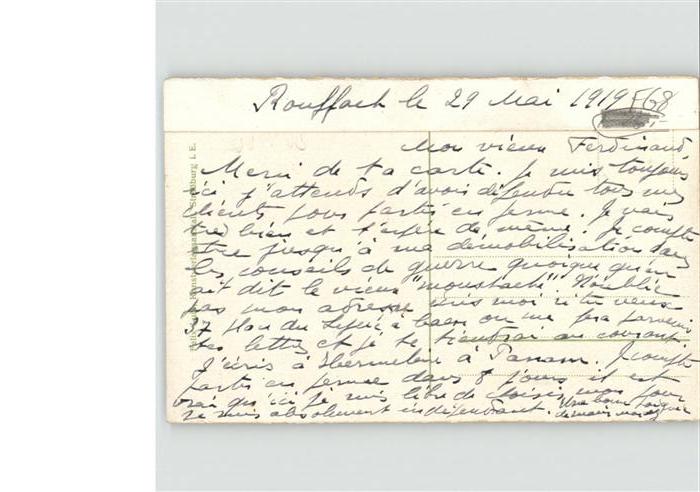 Rouffach le 29 Mai 1919 F68
Mon vieux Ferdinand,
Merci de ta carte. Je suis toujours
ici j'attends d'avoir défendu tous mes
clients pour partir en perme. Je vais
très bien et t'espère de même. Je compte
être jusqu'à ma démobilisation dans
les conseils de guerre quoique qu'en
ait dit le vieux "moustache". N'oublie
pas mon adresse écris moi si tu veux
37 Rue du à Caen on me fera parvenir
tes lettres et je te tiendrai au courant.
J'écris à à Panam. Je compte
partir en perme dans 8 jours il est
vrai qu'ici je suis libre de mon jour
je suis absolument indépendant. Une bonne poignée
de main
Strassburg i. E.